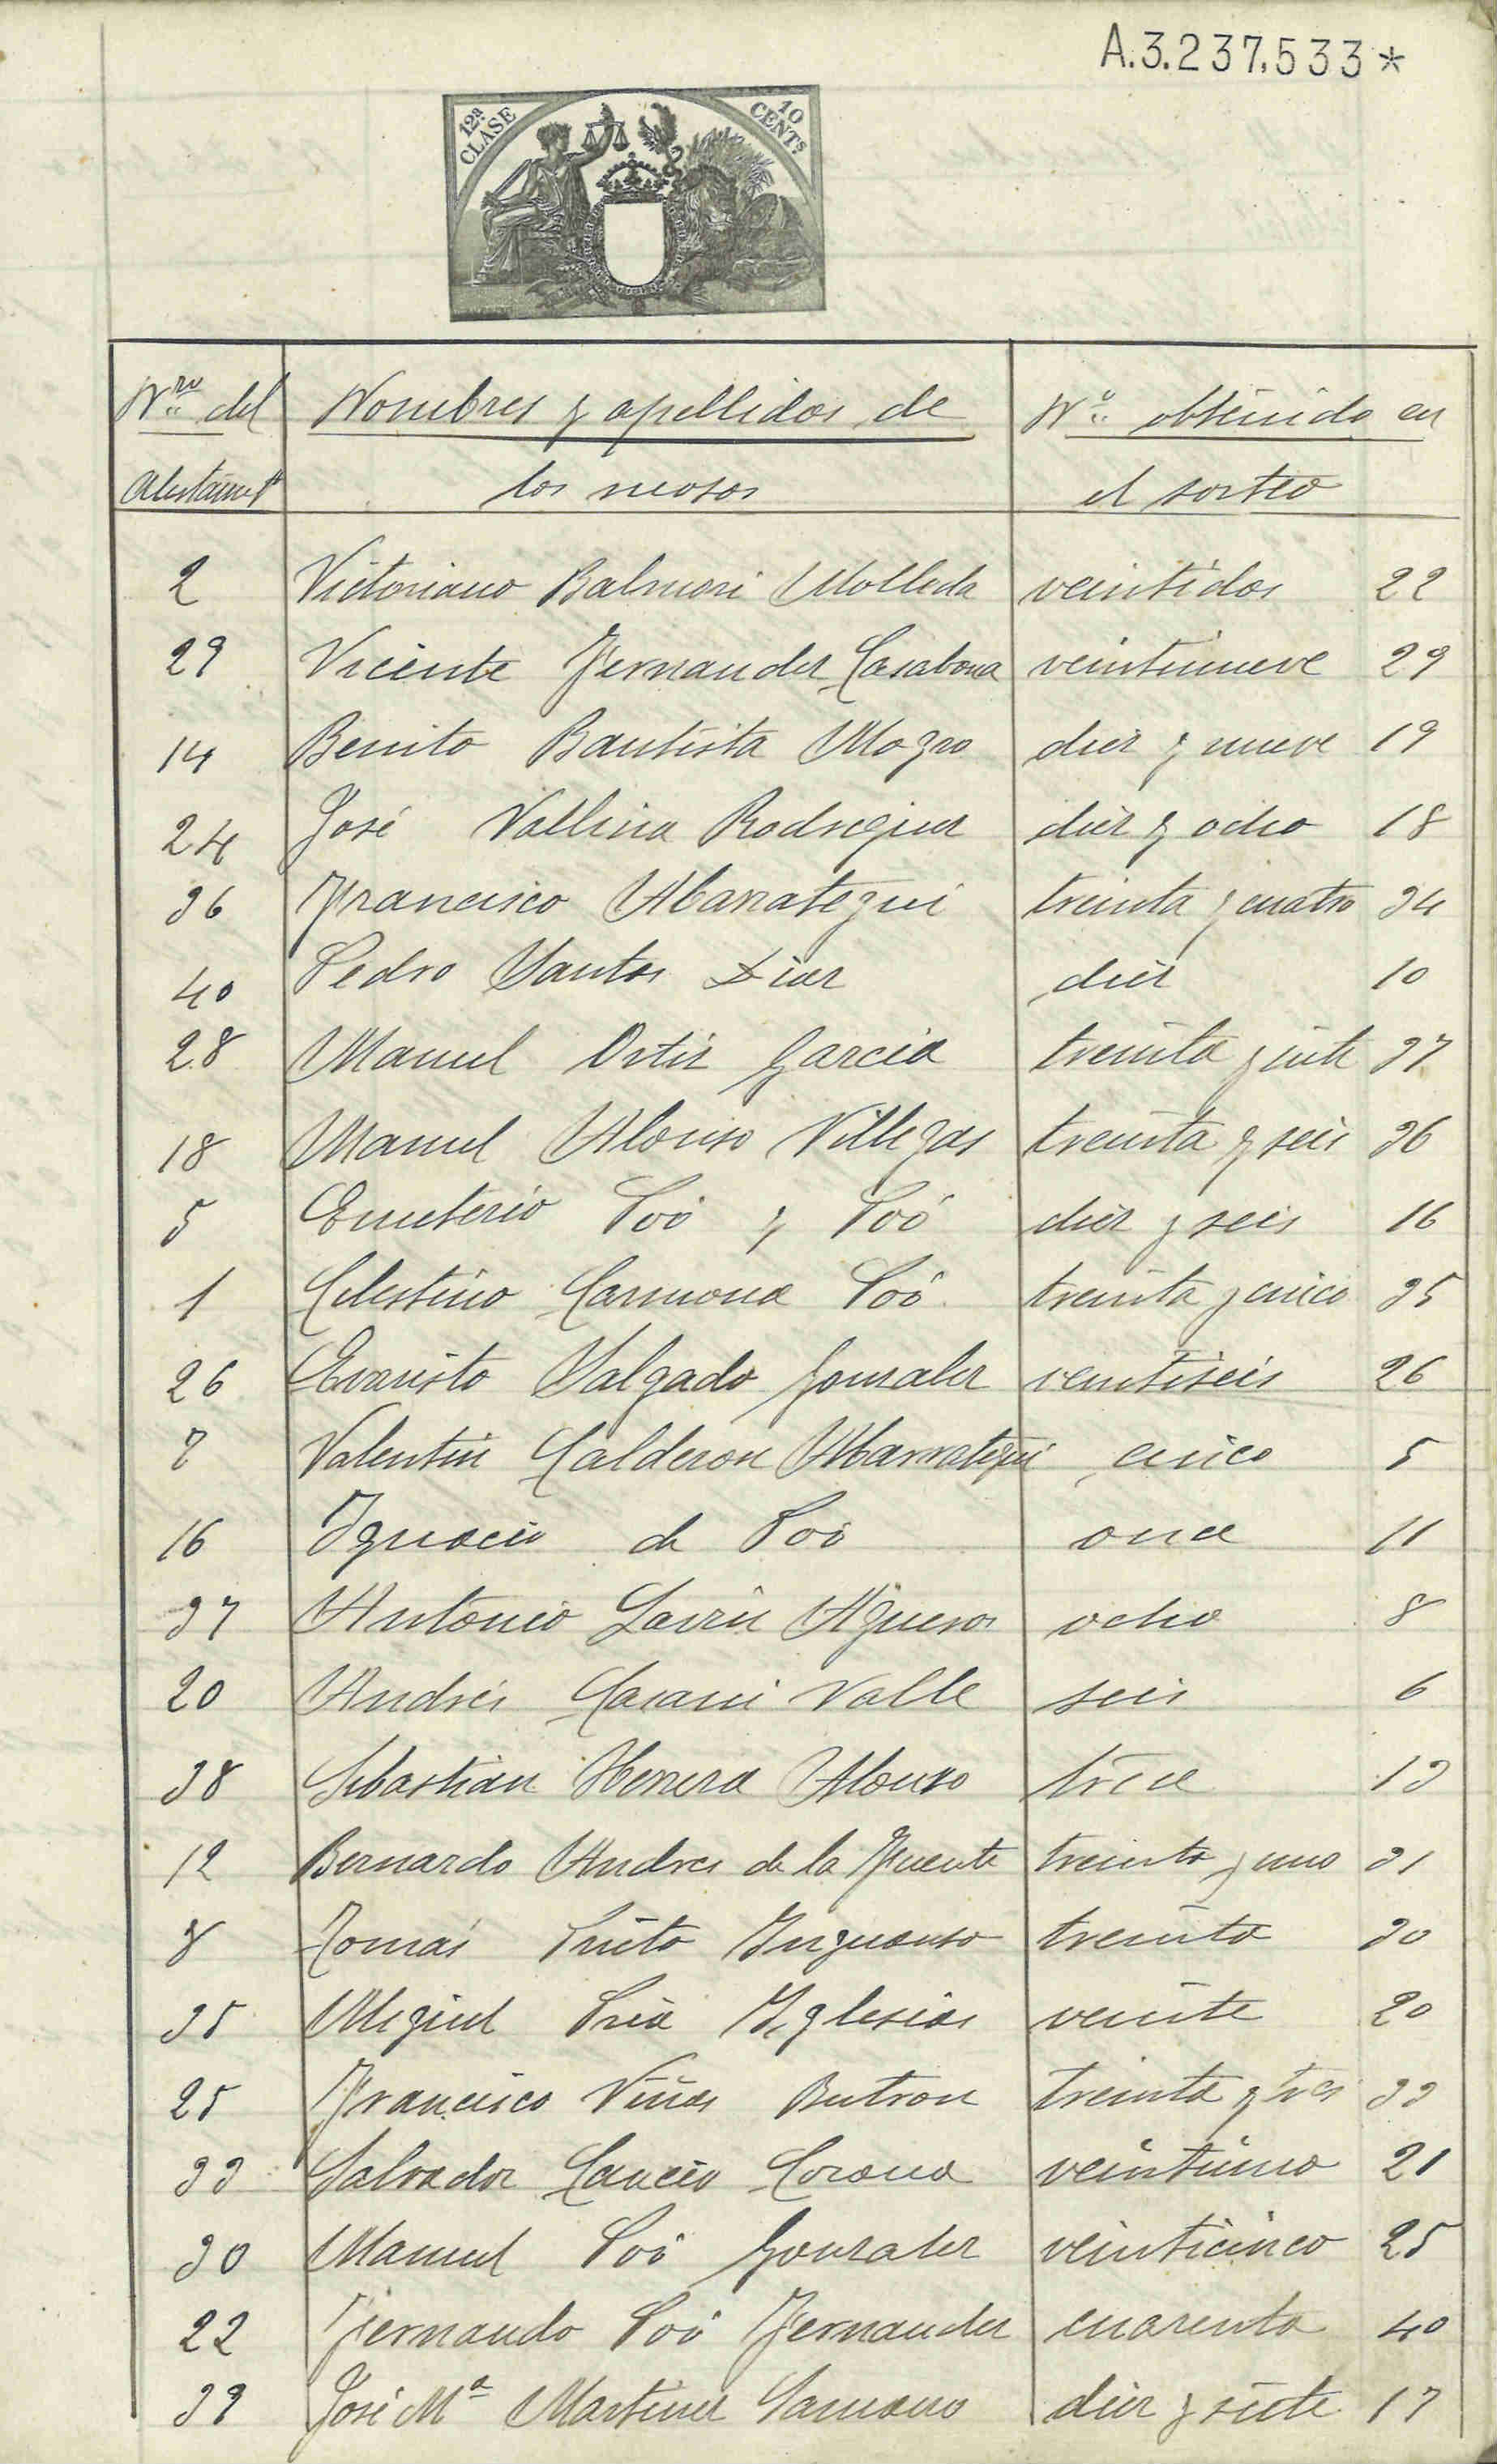 A.3.237,533*
12ª CLASE
10 CENTs
Nro del Nombres y apellidos de Nº obtenido en
Alistamtº los mosos el sorteo
2 Victoriano Balmori Molleda veintidos 22
29 Vicente Fernandez Casabona veintinueve 29
14 Benito Bautista Mogro diez y nueve 19
24 José Vallina Rodriguez diez y ocho 18
36 Francisco Abarrategui treinta y cuatro 34
40 Pedro Santos Diaz diez 10
28 Manuel Ortiz Garcia treinta y siete 37
18 Manuel Alonso Villegas treinta y seis 36
5 Emeterio Poó y Poó diez y seis 16
1 Celestino Carmona Poó treinta y cinco 35
26 Evaristo Salgado Gonzalez veintiseis 26
7 Valentin Calderon Abarrategui cinco 5
16 Ignacio de Poó once 11
37 Antonio Lavin Agueros ocho 8
20 Andrés Valle seis 6
38 Sebastian Herrera Alonso trece 13
12 Bernardo Andres de la Fuente treinta y uno 31
8 Tomás Prieto Inguanzo treinta 30
35 Miguel Pria Yglesias veinte 20
25 Francisco Viñas Butron treinta y tres 33
33 Salvador Cancio Corona veintiuno 21
30 Manuel Poó Gonzalez veinticinco 25
22 Fernando Poó Fernandez cuarenta 40
39 José Mª Martinez Samano diez y siete 17